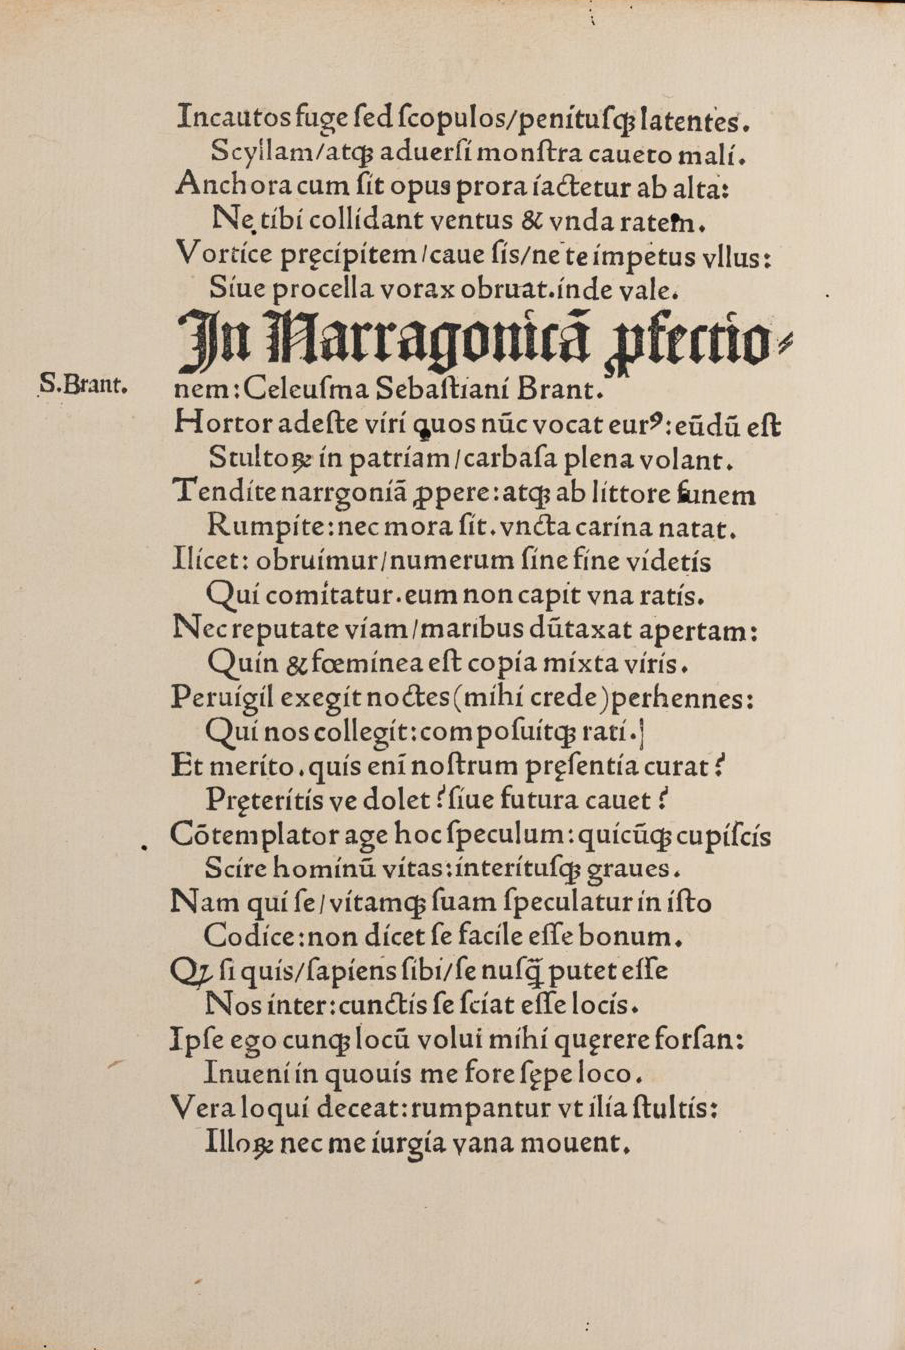 Incautos fuge ſed ſcopulos/penítuſqꝫ latentes.
Scyllam/atqꝫ aduerſí monſtra caueto malí.
Anchora cum ſít opus prora íactetur ab alta:
Ne tíbí collídant ventus & vnda ratem.
Vortíce pręcípítem/caue ſís/ne te ímpetus vllus:
Síue procella vorax obruat.índe vale.
In Narragonicā ꝓfectio⸗
S.Brant.
nem:Celeuſma Sebaſtíaní Brant.
Hortor adeſte vírí quos nūc vocat eurꝰ:eūdū eſt
Stultoꝝ ín patríam/carbaſa plena volant.
Tendíte narrgoníā ꝓpere:atqꝫ ab líttore funem
Rumpíte:nec mora ſít.vncta carína natat.
Ilícet: obruímur/numerum ſíne fíne vídetís
Quí comítatur.eum non capít vna ratís.
Nec reputate víam/maribus dūtaxat apertam:
Quín & fœmínea eſt copía míxta vírís.
Peruígíl exegít noctes(míhí crede)perhennes:
Quí nos collegít:compoſuítqꝫ ratí.
Et meríto.quís ení̄ noſtrum pręſentía curat?
Pręterítís ve dolet?ſíue futura cauet?
Cōtemplator age hoc ſpeculum:quícūqꝫ cupíſcís
Scíre homínū vítas:ínterítuſqꝫ graues.
Nam quí ſe/vítamqꝫ ſuam ſpeculatur ín íſto
Codíce:non dícet ſe facíle eſſe bonum.
Qꝫ ſi quís/ſapíens ſibi/ſe nuſq̄ putet eſſe
Nos ínter:cunctís ſe ſcíat eſſe locís.
Ipſe ego cunqꝫ locū volui míhí quęrere forſan:
Inuení ín quouís me fore ſępe loco.
Vera loquí deceat:rumpantur vt ilía ſtultís:
Illoꝝ nec me íurgía vana mouent.